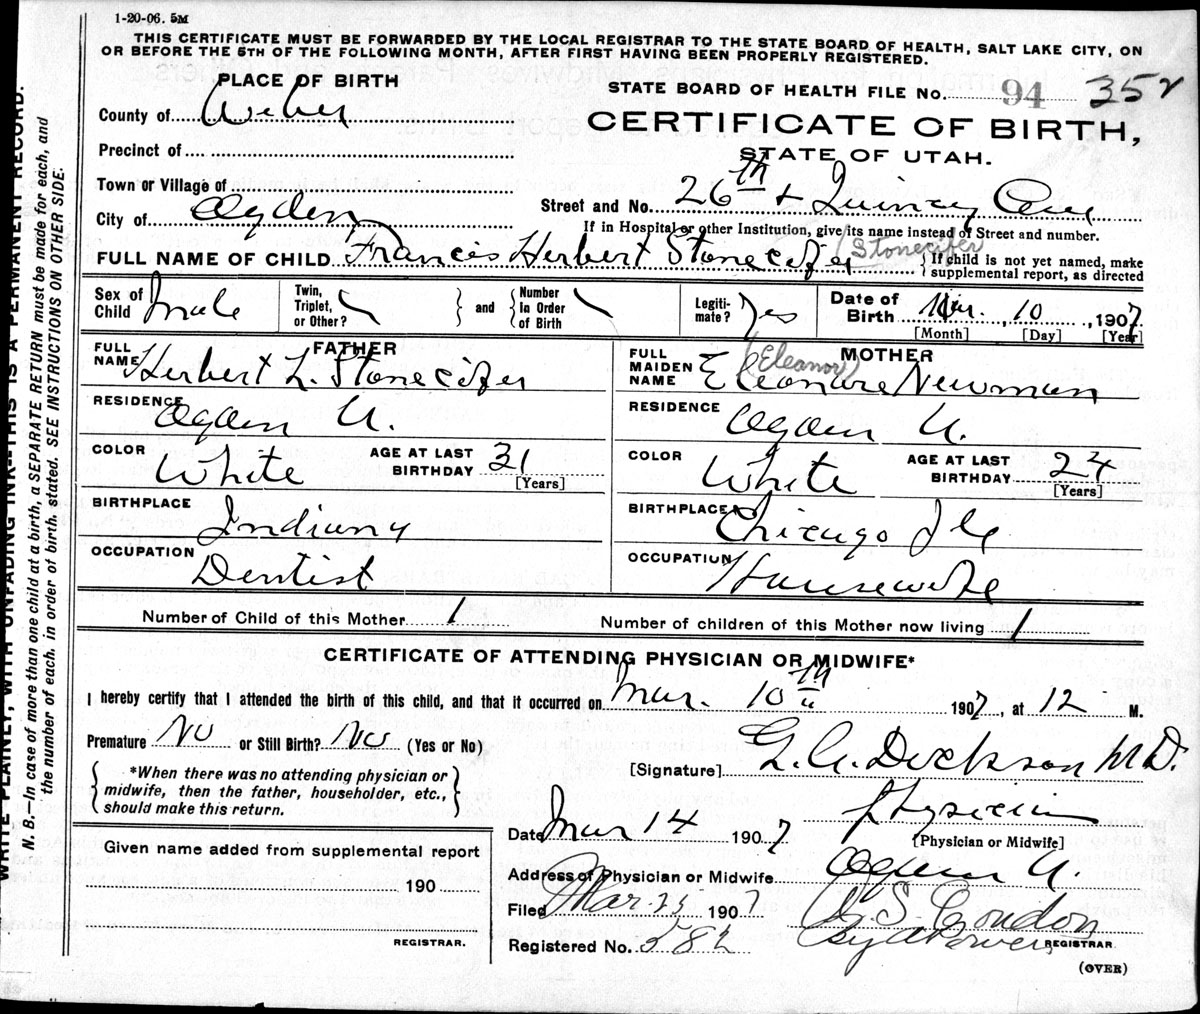 1-20-06. 5M
THIS CERTIFICATE MUST BE FORWARDED BY THE LOCAL REGISTRAR TO THE STATE BOARD OF HEALTH, SALT LAKE CITY, ON
OR BEFORE THE 5TH OF THE FOLLOWING MONTH, AFTER FIRST HAVING BEEN PROPERLY REGISTERED.
PLACE OF BIRTH
STATE BOARD OF HEALTH FILE No. 94 352
County of Weber
CERTIFICATE OF BIRTH,
STATE OF UTAH.
Precinct of
Town or Village of
City of Ogden
Street and No. 26th + Quincy Ave
If in Hospital or other Institution, give its name instead of Street and number.
FULL NAME OF CHILD Francis Herbert Stonecifer (Stonecifer)
{If child is not yet named, make
supplemental report, as directed
Sex of Child Male
Twin, Triplet, or Other?
and
Number In Order of Birth
Legitimate? Yes
Date of Birth Mar. 10, 1907
[Month] [Day] [Year]
FATHER
FULL NAME Herbert L. Stonecifer
RESIDENCE Ogden U.
COLOR White
AGE AT LAST BIRTHDAY 31
[Years]
BIRTHPLACE Indiana
OCCUPATION Dentist
MOTHER
FULL MAIDEN NAME Eleonore (Eleanor) Newman
RESIDENCE Ogden U.
COLOR White
AGE AT LAST BIRTHDAY 24
[Years]
BIRTHPLACE Chicago Ill
OCCUPATION Housewife
Number of Child of this Mother 1
Number of children of this Mother now living 1
CERTIFICATE OF ATTENDING PHYSICIAN OR MIDWIFE*
I hereby certify that I attended the birth of this child, and that it occurred on Mar. 10th 1907, at 12 M.
Premature No or Still Birth? No (Yes or No)
[Signature] Dickson M.D.
*When there was no attending physician or
midwife, then the father, householder, etc.,
should make this return.
Date Mar 14 1907
Physician
[Physician or Midwife]
Given name added from supplemental report
190
REGISTRAR.
Address of Physician or Midwife Ogden U.
Filed Mar. 1907
Registered No. 582
REGISTRAR.
(OVER)
WRITE PLAINLY, WITH UNFADING INK—THIS IS A PERMANENT RECORD.
N. B.—In case of more than one child at a birth, a SEPARATE RETURN must be made for each, and
the number of each, in order of birth, stated. SEE INSTRUCTIONS ON OTHER SIDE.